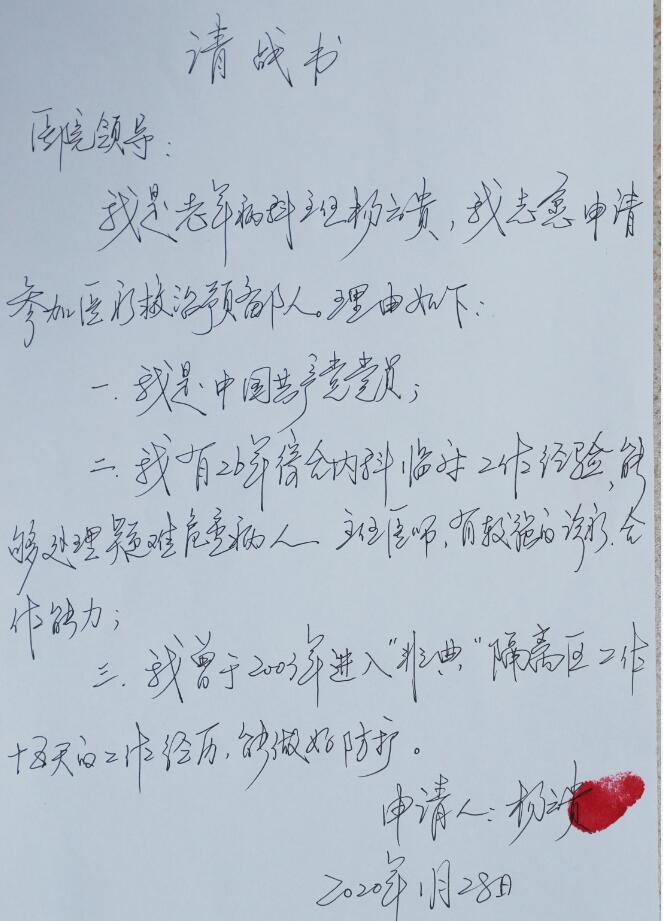 请战书
医院领导：
我是老年病科主任杨云贵，我志愿申请
参加医疗救治预备队人。理由如下：
一.我是中国共产党党员；
二.我有26年综合内科临床工作经验，能
够处理疑难危重病人 主任医师，有较强的诊疗、合
作能力；
三.我曾于2003年进入"非典"隔离区工作
十五天的工作经历，能做好防护。
申请人：杨云贵
2020年1月28日